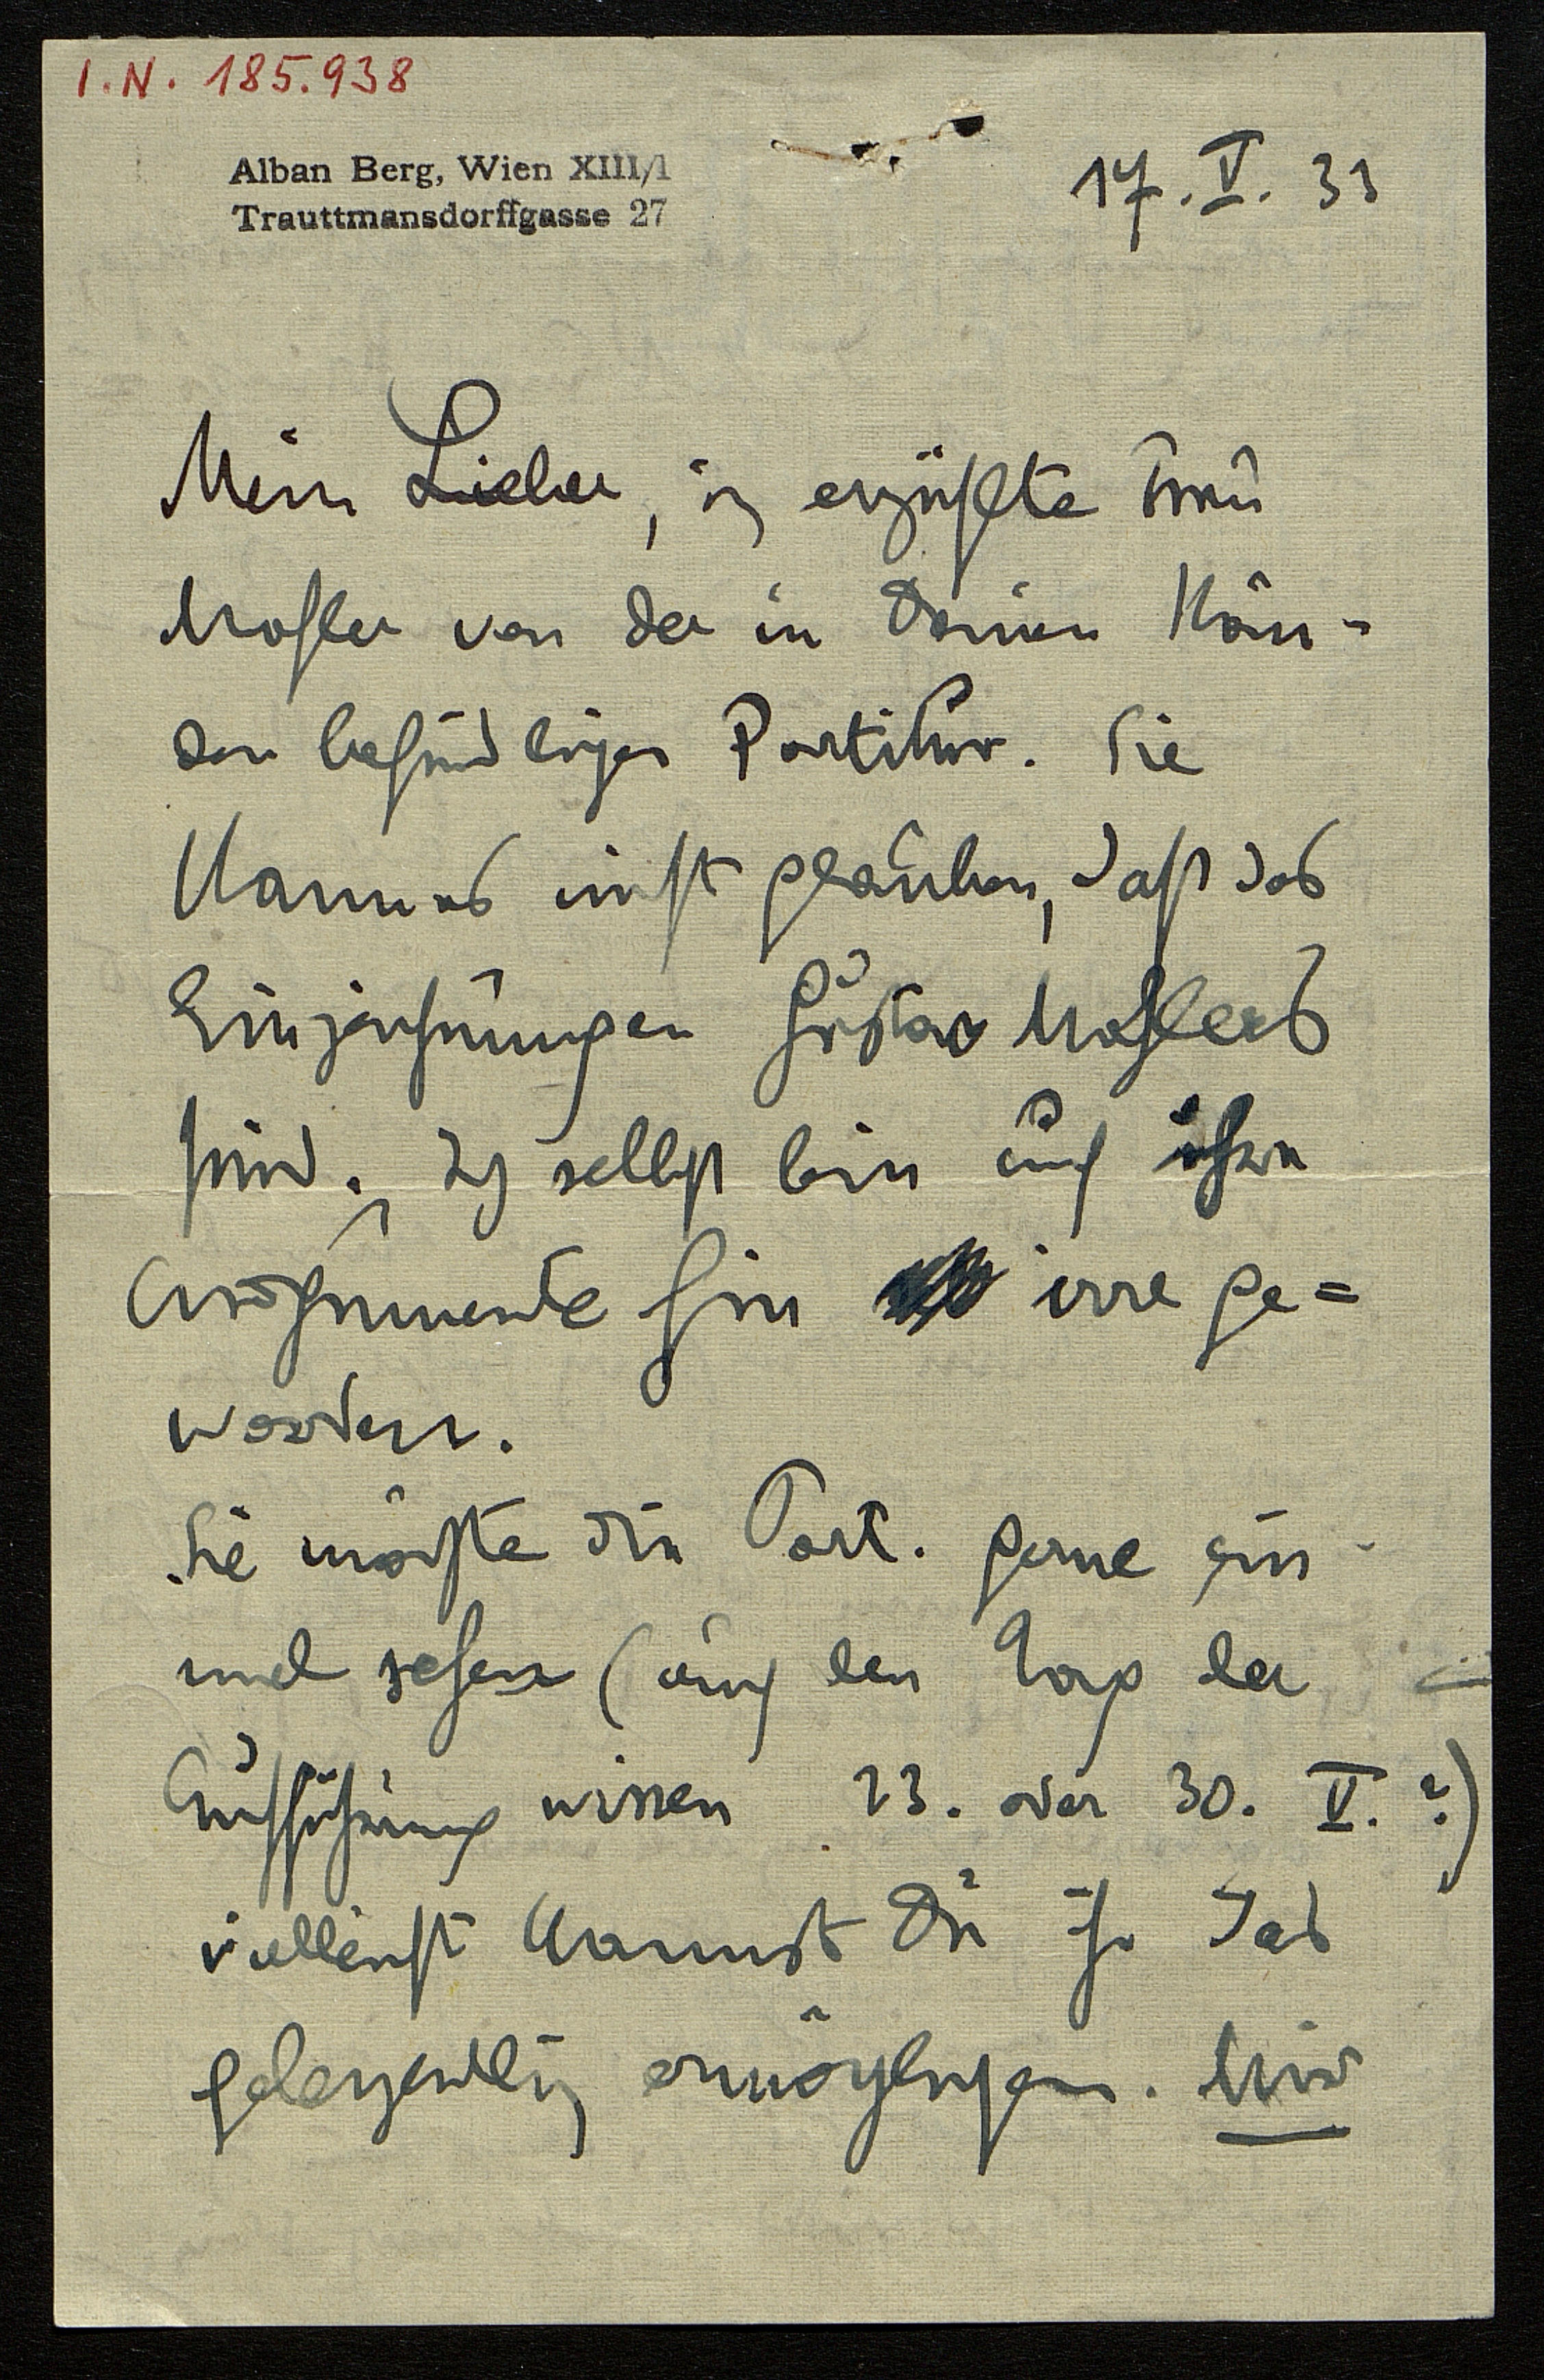 I.N. 185.938
Alban Berg, Wien XIII/1
Trauttmansdorffgasse 27
17. V. 33
Mein Lieber, ich erzählte Frau
Mahler von der in Deinen Hän-
den befindlichen Partitur. Sie
kann es nicht glauben, daß das
Einzeichnungen Gustav Mahlers
sind. Ich selbst bin auf ihre
Argumente hin irre ge=
worden.
Sie möchte die Part. gerne ein-
mal sehen (auch den Tag der
Aufführung wissen 23. oder 30. V.?)
vielleicht kannst Du ihr das
gelegentlich ermöglichen. Mir